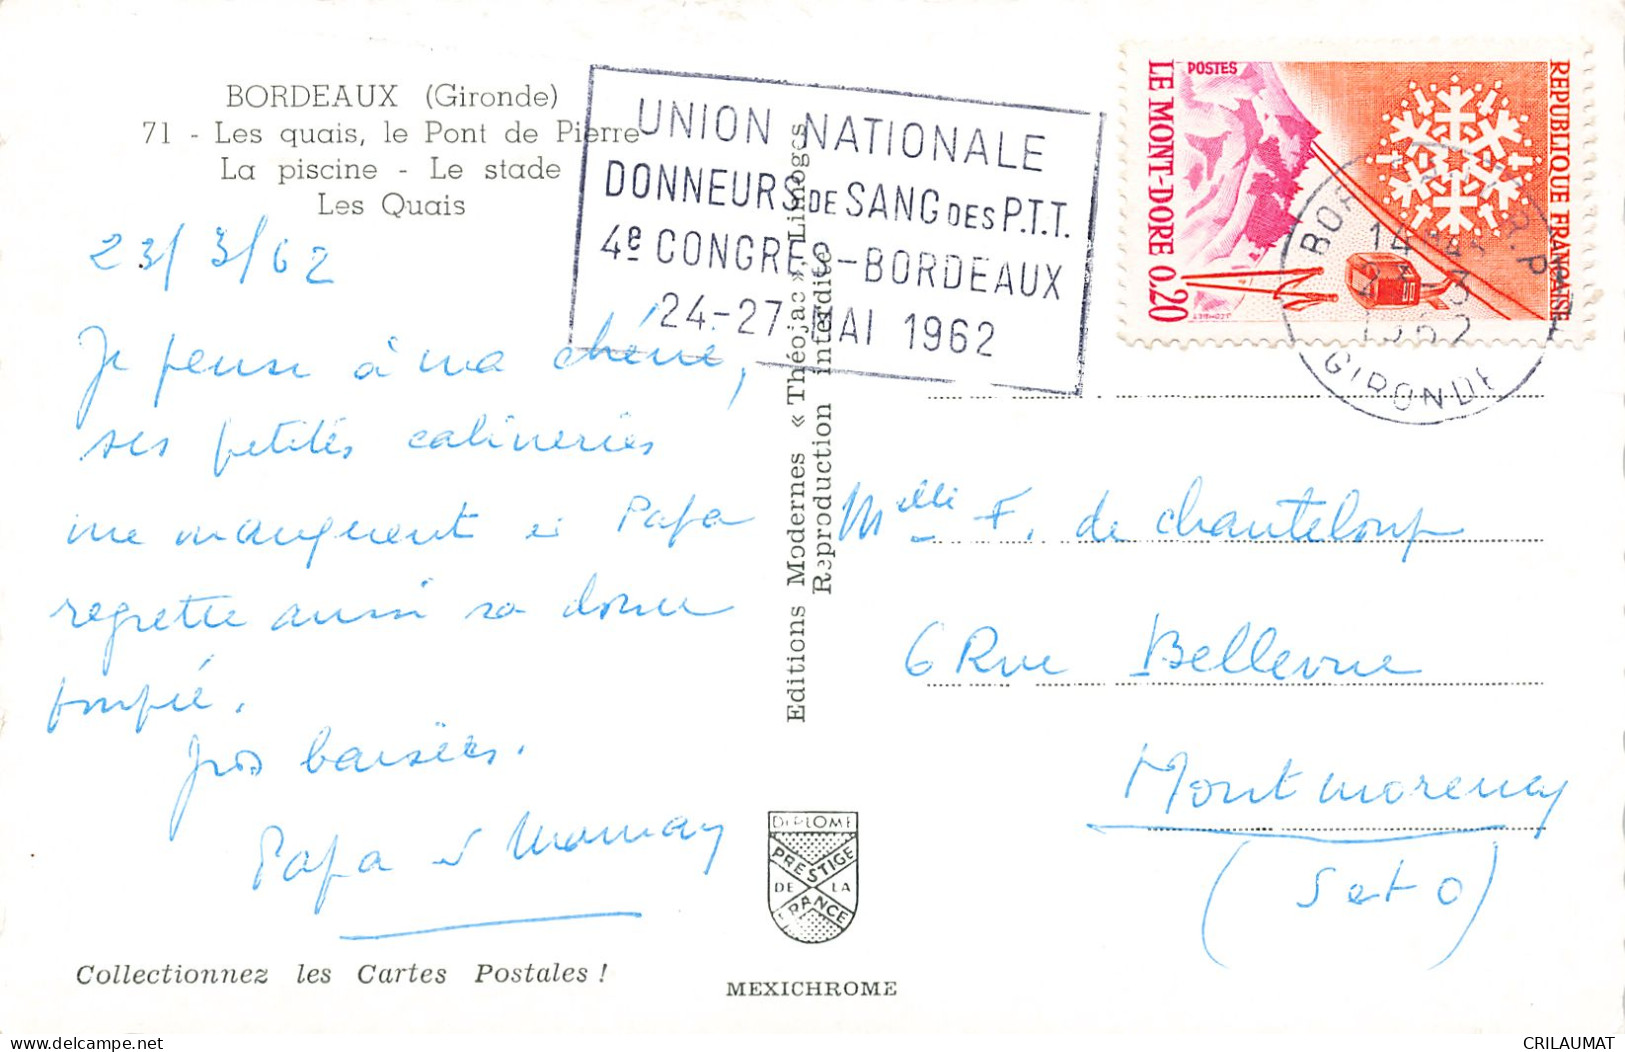 BORDEAUX (Gironde)
71 - Les quais, le Pont de Pierre
La piscine - Le stade
Les Quais
UNION NATIONALE
DONNEURS DE SANG DES P.T.T.
4e CONGRES - BORDEAUX
24-27 MAI 1962
POSTES
LE MONT-DORE 0,20
REPUBLIQUE FRANÇAISE
BOR
14
1962
GIRONDE
23/3/62
Je pense à ma chérie,
ses petites calineries
me manquent et Papa
regrette aussi sa douce
poupée.
Gros baisers.
Papa et Maman
Editions Modernes « Théojac », Limoges
Reproduction interdite
Melle F. de Chanteloup
6 Rue Bellevue
Montmorency
(S et O)
DIPLOME
PRESTIGE
DE LA
FRANCE
Collectionnez les Cartes Postales !
MEXICHROME
delcampe.net
CRILAUMAT